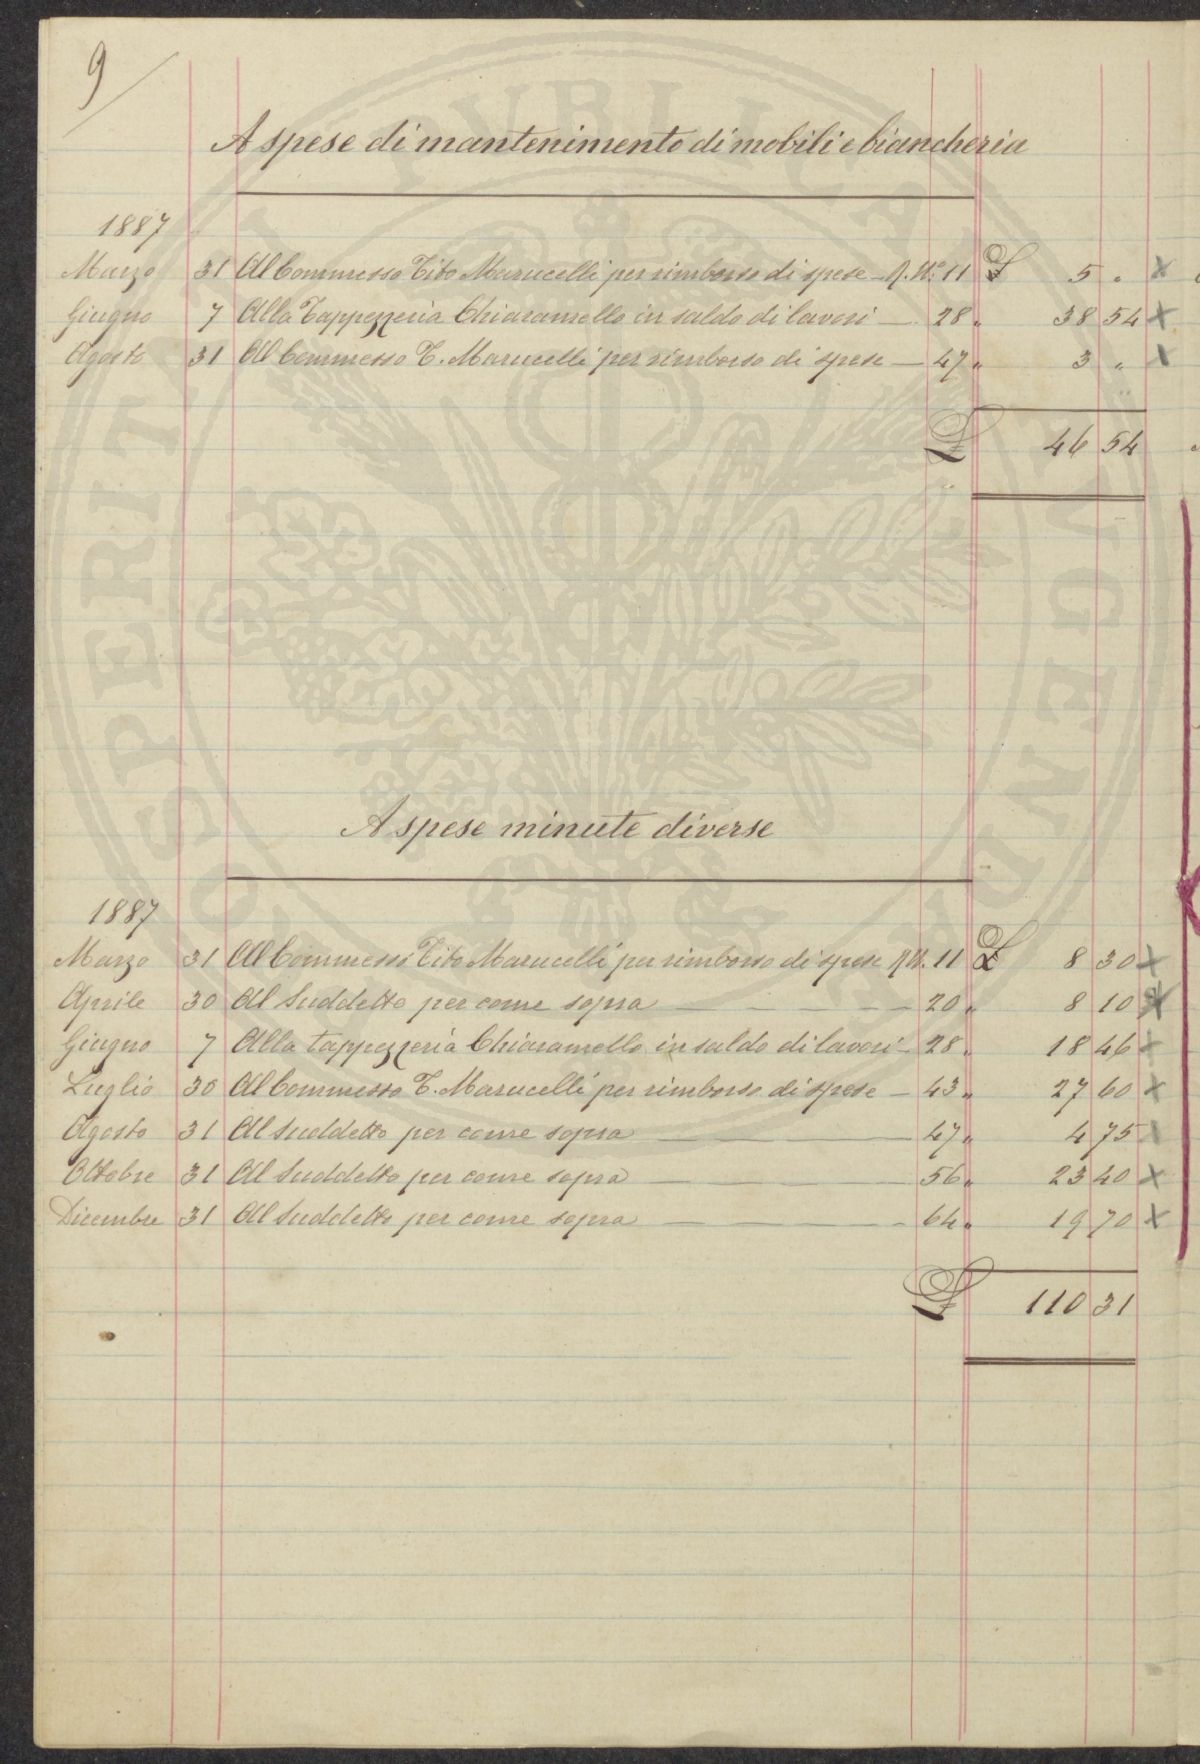 9
A spese di mantenimento di mobili e biancheria
1887
Marzo 31 Al Commesso Tito Marucelli per rimborso di spese - Q. N.º 11 £ 5 " X
Giugno 7 Alla Tappezzeria Chiaramello in saldo di lavori — 28 " 38 54 X
Agosto 31 Al Commesso T. Marucelli per rimborso di spese — 47 " 3 " X
£ 46 54
A spese minute diverse
1887
Marzo 31 Al Commesso Tito Marucelli per rimborso di spese Q N. 11 £ 8 30 X
Aprile 30 Al Suddetto per come sopra — 20 " 8 10 X
Giugno 7 Alla tappezzeria Chiaramello in saldo di lavori - 28 " 18 46 X
Luglio 30 Al Commesso T. Marucelli per rimborso di spese — 43 " 27 60 X
Agosto 31 Al suddetto per come sopra — 47 " 4 75 X
Ottobre 31 Al Suddetto per come sopra — 56 " 23 40 X
Dicembre 31 Al Suddetto per come sopra — 64 " 19 70 X
£ 110 31